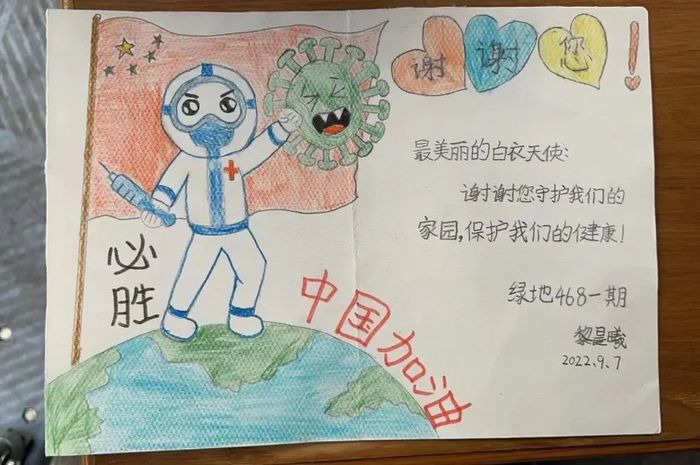 谢谢您!
最美丽的白衣天使:
谢谢您守护我们的
家园,保护我们的健康!
绿地468一期
黎昷曦
2022.9.7
必胜
中国加油